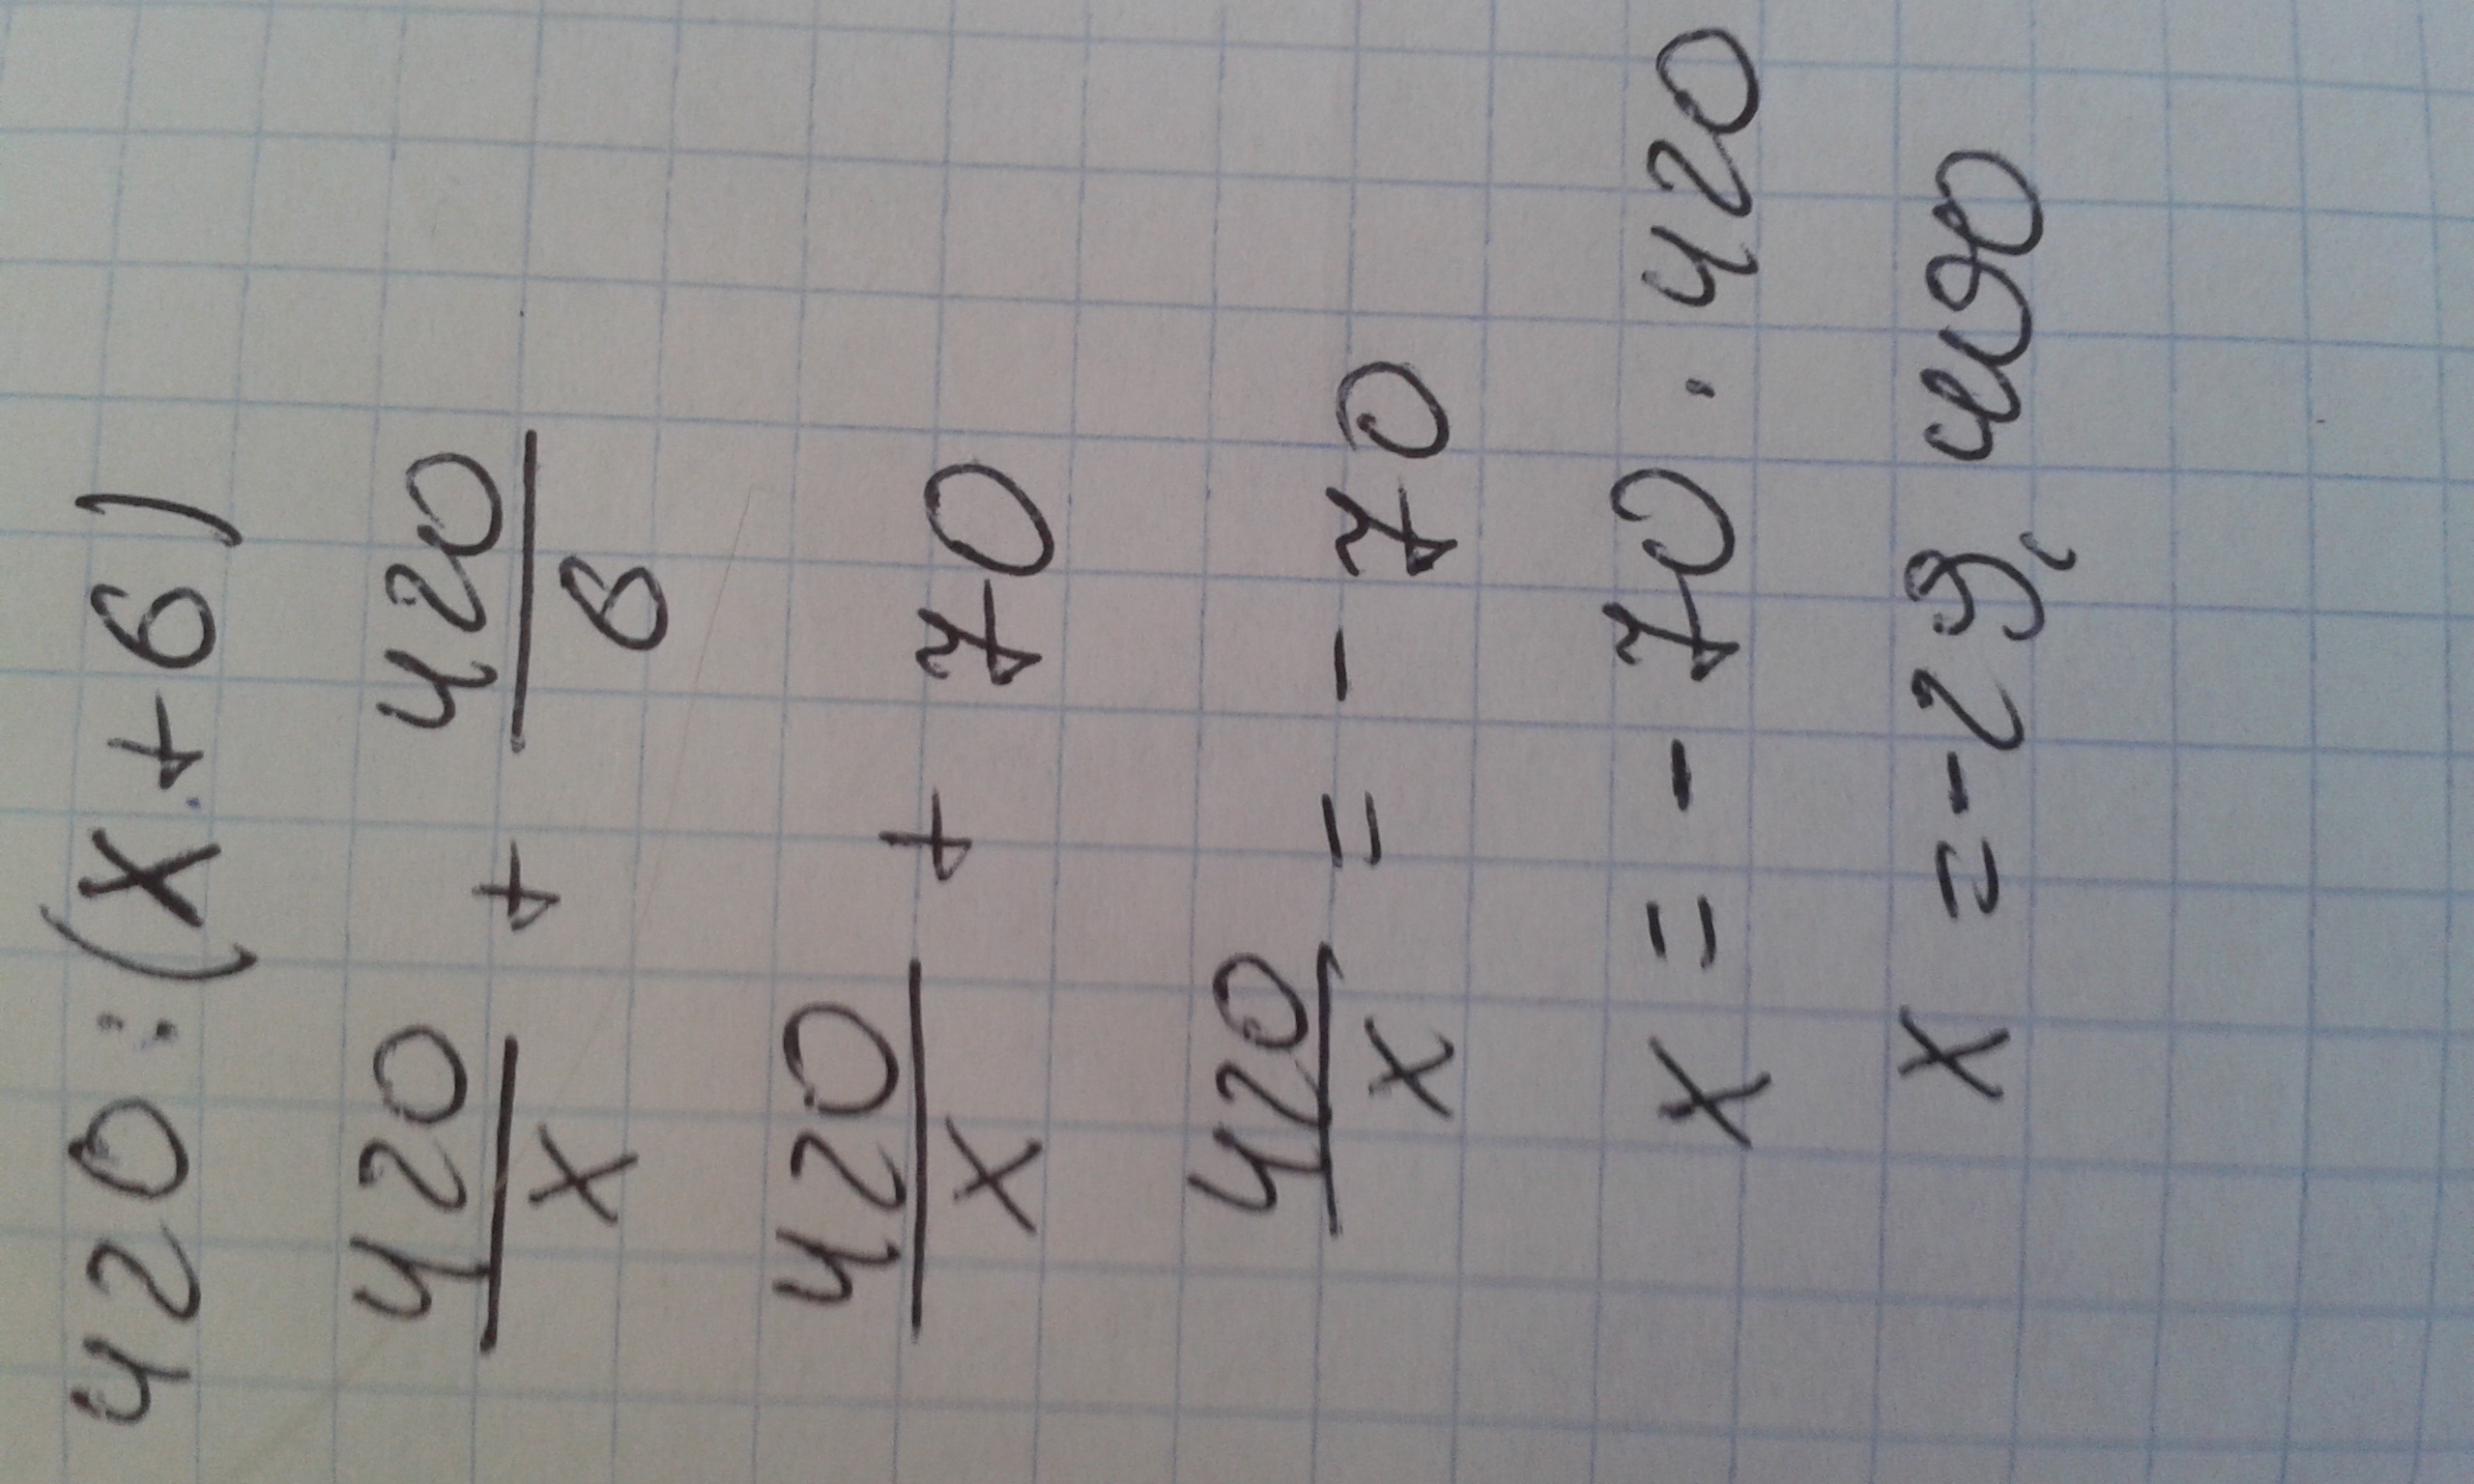 420:(x+6)
420/x + 420/6
420/x + 70
420/x = -70
x = -70 · 420
x = -29,400